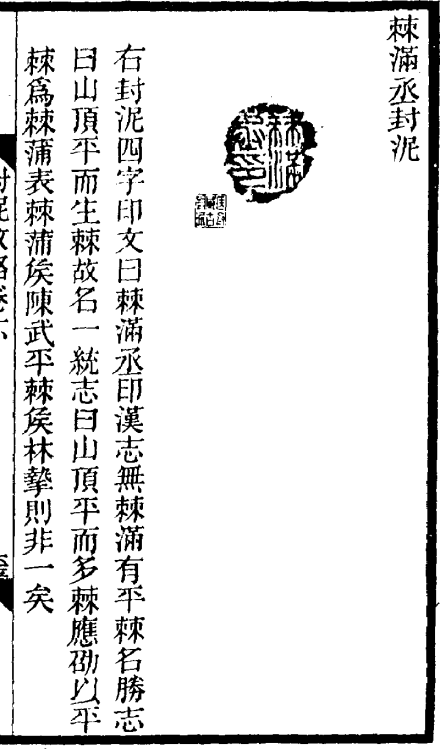 棘滿丞封泥
棘滿丞印
右封泥四字印文曰棘滿丞印漢志無棘滿有平棘名勝志
曰山頂平而生棘故名一統志曰山頂平而多棘應劭以平
棘爲棘蒲表棘蒲侯陳武平棘侯林摯則非一矣
封泥攷略卷六